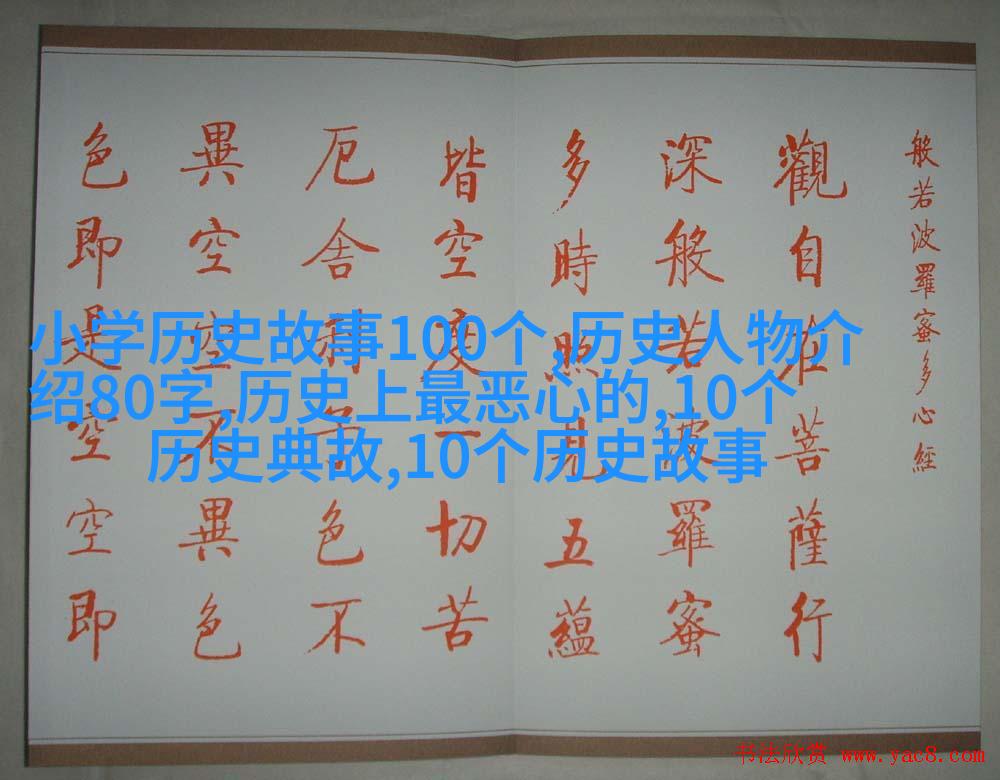 般若波羅蜜多心經
觀自在菩薩行
深般若波羅蜜
多時照見五蘊
皆空度一切苦
厄舍利子色不
異空空不異色
色即是空空即
小学历史故事100个,历史人物介
绍80字,历史上最恶心的,10个
历史典故,10个历史故事
书法欣赏 www.yac8.com